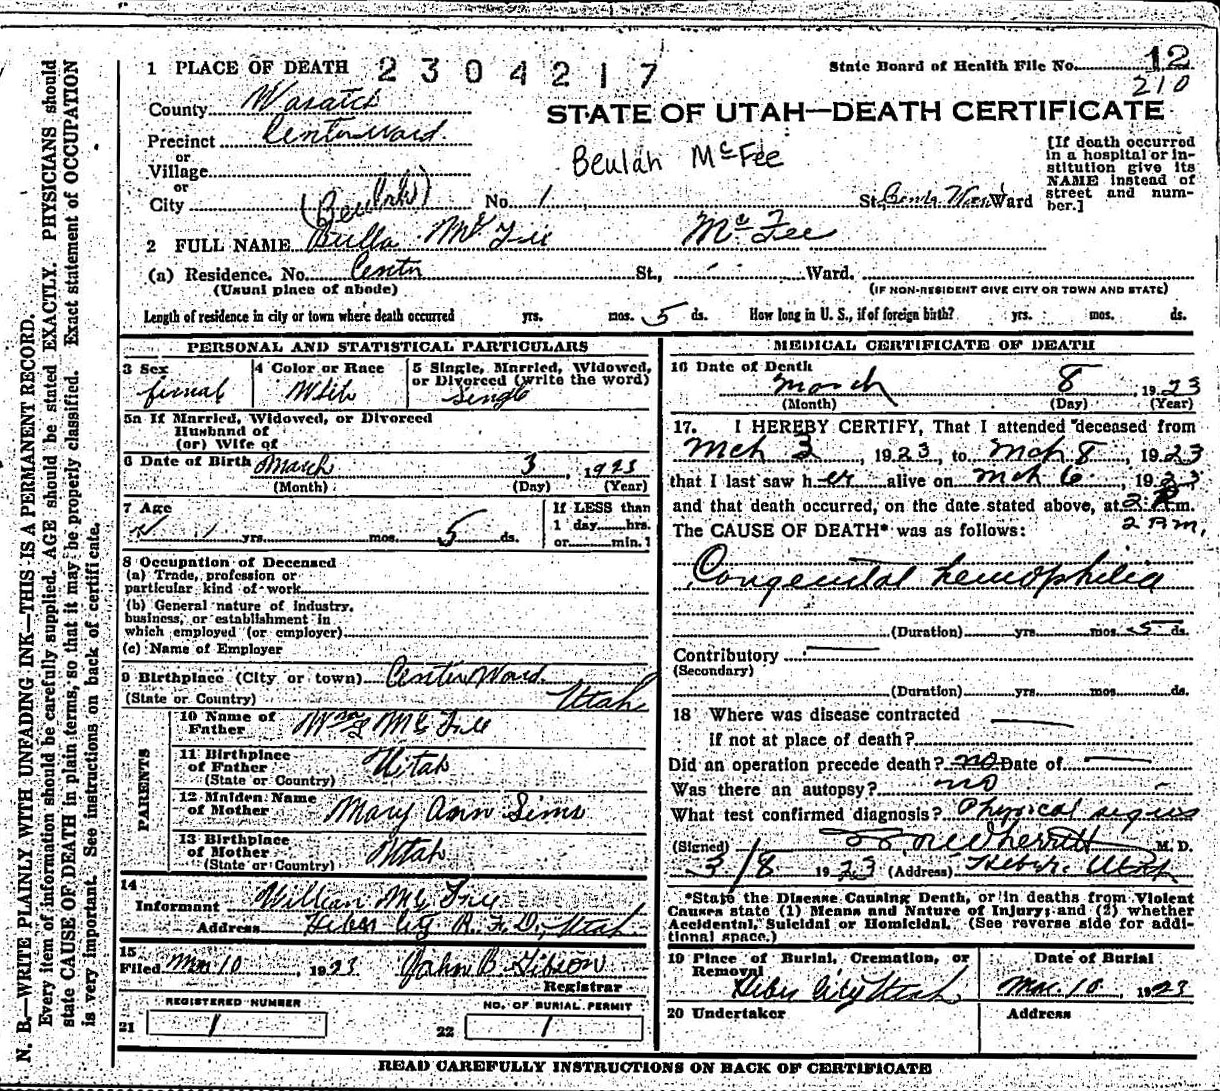 1 PLACE OF DEATH 2304217 State Board of Health File No. 12
210
County Wasatch
STATE OF UTAH—DEATH CERTIFICATE
Precinct Center Ward
or
Village
or
Beulah McFee
[If death occurred in a hospital or institution give its NAME instead of street and number.]
City No. 1 St., Center Ward Ward
(Beulah)
2 FULL NAME Bulla McFee McFee
(a) Residence. No. Center St., Ward.
(Usual place of abode) (IF NON-RESIDENT GIVE CITY OR TOWN AND STATE)
Length of residence in city or town where death occurred yrs. mos. 5 ds. How long in U. S., if of foreign birth? yrs. mos. ds.
PERSONAL AND STATISTICAL PARTICULARS
3 Sex 4 Color or Race 5 Single, Married, Widowed,
or Divorced (write the word)
femal Whit Single
5a If Married, Widowed, or Divorced
Husband of
(or) Wife of
6 Date of Birth March 3, 1923
(Month) (Day) (Year)
7 Age If LESS than
yrs. mos. 5 ds. 1 day hrs.
or min.?
8 Occupation of Deceased
(a) Trade, profession or
particular kind of work
(b) General nature of industry,
business, or establishment in
which employed (or employer)
(c) Name of Employer
9 Birthplace (City or town) Center Ward
(State or Country) Utah
PARENTS
10 Name of
Father Wm McFee
11 Birthplace
of Father Utah
(State or Country)
12 Maiden Name
of Mother Mary Ann Sims
13 Birthplace
of Mother Utah
(State or Country)
14
Informant William McFee
Address Heber City R. F. D., Utah
15
Filed Mar 10, 1923 John B. Gibson
Registrar
REGISTERED NUMBER NO. OF BURIAL PERMIT
21 1 22 1
MEDICAL CERTIFICATE OF DEATH
16 Date of Death
March 8 1923
(Month) (Day) (Year)
17. I HEREBY CERTIFY, That I attended deceased from
Mch 3, 1923, to Mch 8, 1923
that I last saw h er alive on Mch 6, 1923
and that death occurred, on the date stated above, at 2 m.
2 A.m.
The CAUSE OF DEATH* was as follows:
Congenital hemophilia
(Duration) yrs. mos. 5 ds.
Contributory
(Secondary)
(Duration) yrs. mos. ds.
18 Where was disease contracted
if not at place of death?
Did an operation precede death? no Date of
Was there an autopsy? no
What test confirmed diagnosis? Physical signs
(Signed) Wherritt M. D.
3/8 1923 (Address) Heber Utah
*State the Disease Causing Death, or in deaths from Violent
Causes state (1) Means and Nature of Injury; and (2) whether
Accidental, Suicidal or Homicidal. (See reverse side for addi-
tional space.)
19 Place of Burial, Cremation, or Date of Burial
Removal
Heber City Utah Mar. 10, 1923
20 Undertaker Address
READ CAREFULLY INSTRUCTIONS ON BACK OF CERTIFICATE
N. B.—WRITE PLAINLY WITH UNFADING INK—THIS IS A PERMANENT RECORD.
Every item of information should be carefully supplied. AGE should be stated EXACTLY. PHYSICIANS should
state CAUSE OF DEATH in plain terms, so that it may be properly classified. Exact statement of OCCUPATION
is very important. See instructions on back of certificate.